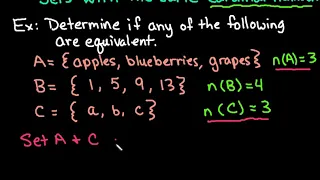 Sets with the same Cardinal Number
Ex: Determine if any of the following
are equivalent.
A = { apples, blueberries, grapes} n(A)=3
B = { 1, 5, 9, 13} n(B)=4
C = { a, b, c } n(C)=3
Set A + C